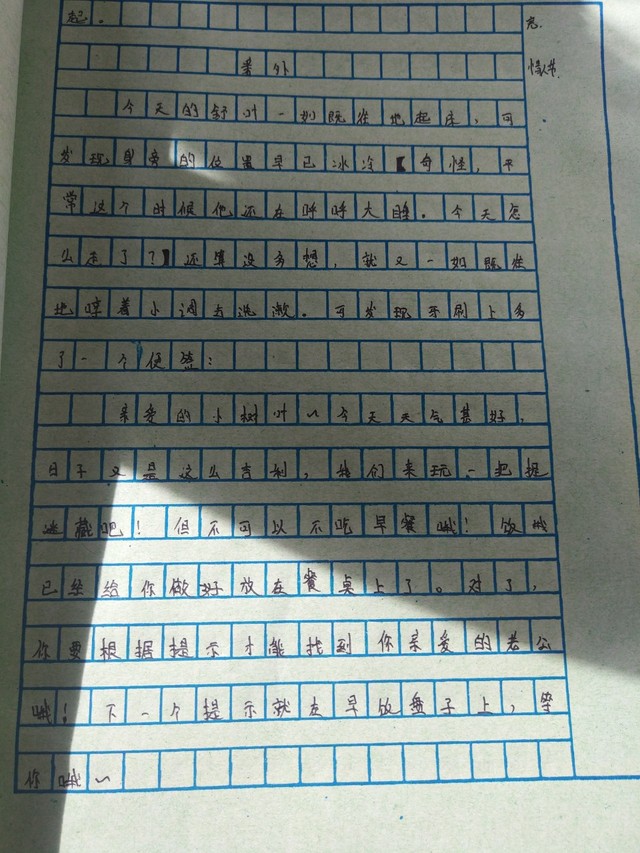 起。
番外
今天的舒叶一如既往地起床，可
发现身旁的位置早已冰冷奇怪，平
常这个时候他还在呼呼大睡。今天怎
么走了？还算没多想，就又一如既往
地哼着小调去洗漱。可发现牙刷上多
了一个便签：
亲爱的小树叶～今天天气甚好，
日子又是这么吉利，我们来玩一把捉
迷藏吧！但不可以不吃早餐哦！饭哦
已经给你做好放在餐桌上了。对了，
你要根据提示才能找到你亲爱的老公
哦！下一个提示就在早饭盘子上，等
你哦～
完.
情人节.